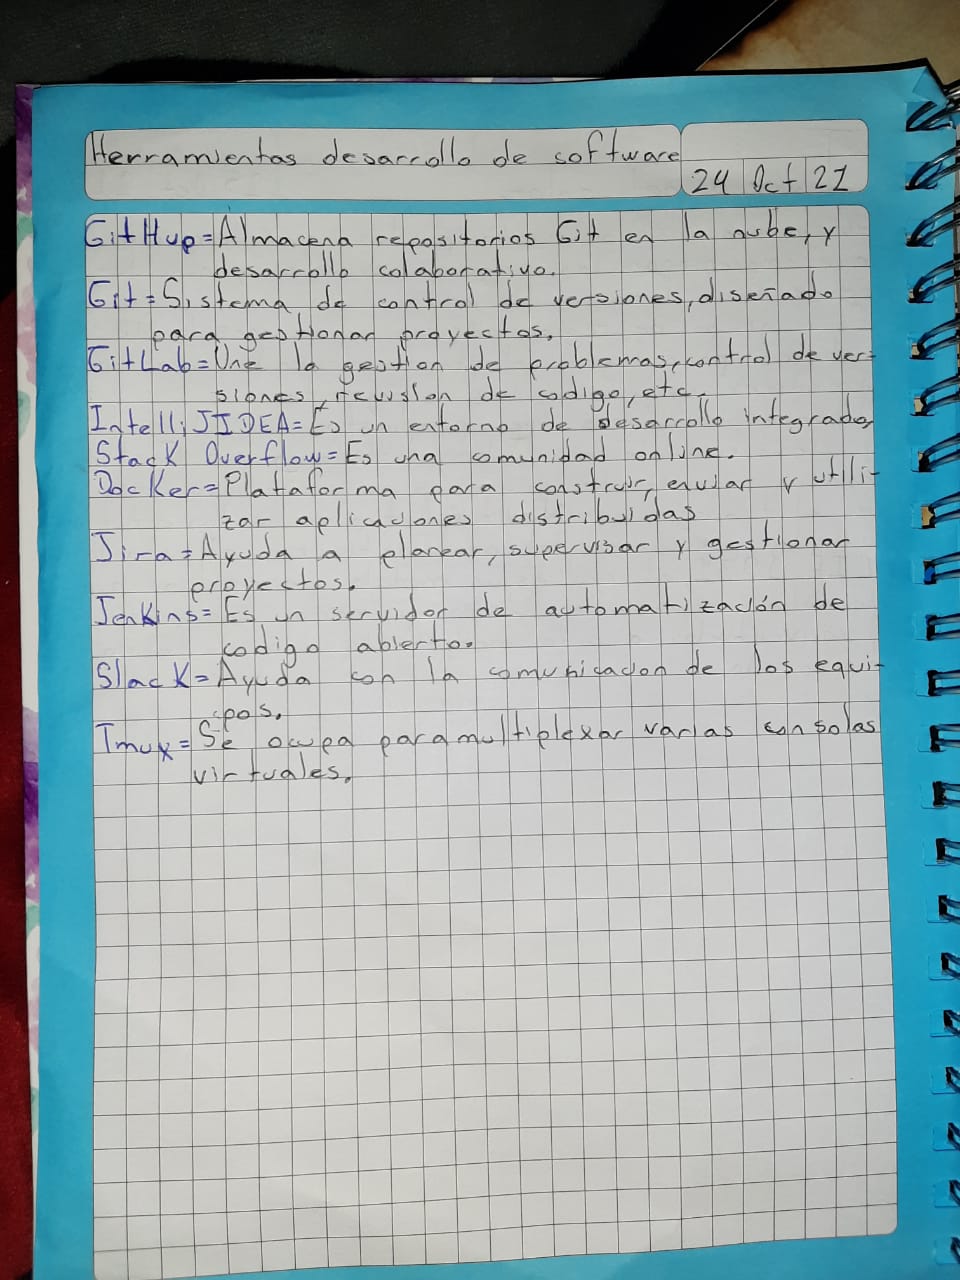 Herramientas desarrollo de software
24 Oct 21
GitHup=Almacena repositorios Git en la nube, y
desarrollo colaborativo.
Git=Sistema de control de versiones, diseñado
para gestionar proyectos.
GitLab=Une la gestion de problemas, control de ver-
siones, revision de codigo, etc.
IntelliJIDEA=Es un entorno de desarrollo integrado
Stack Overflow=Es una comunidad online.
Docker=Plataforma para construir, enviar y utili-
zar aplicaciones distribuidas
Jira=Ayuda a planear, supervisar y gestionar
proyectos.
Jenkins=Es un servidor de automatización de
codigo abierto.
Slack=Ayuda con la comunicacon de los equi-
pos.
Tmux=Se ocupa para multiplexar varias consolas
virtuales.